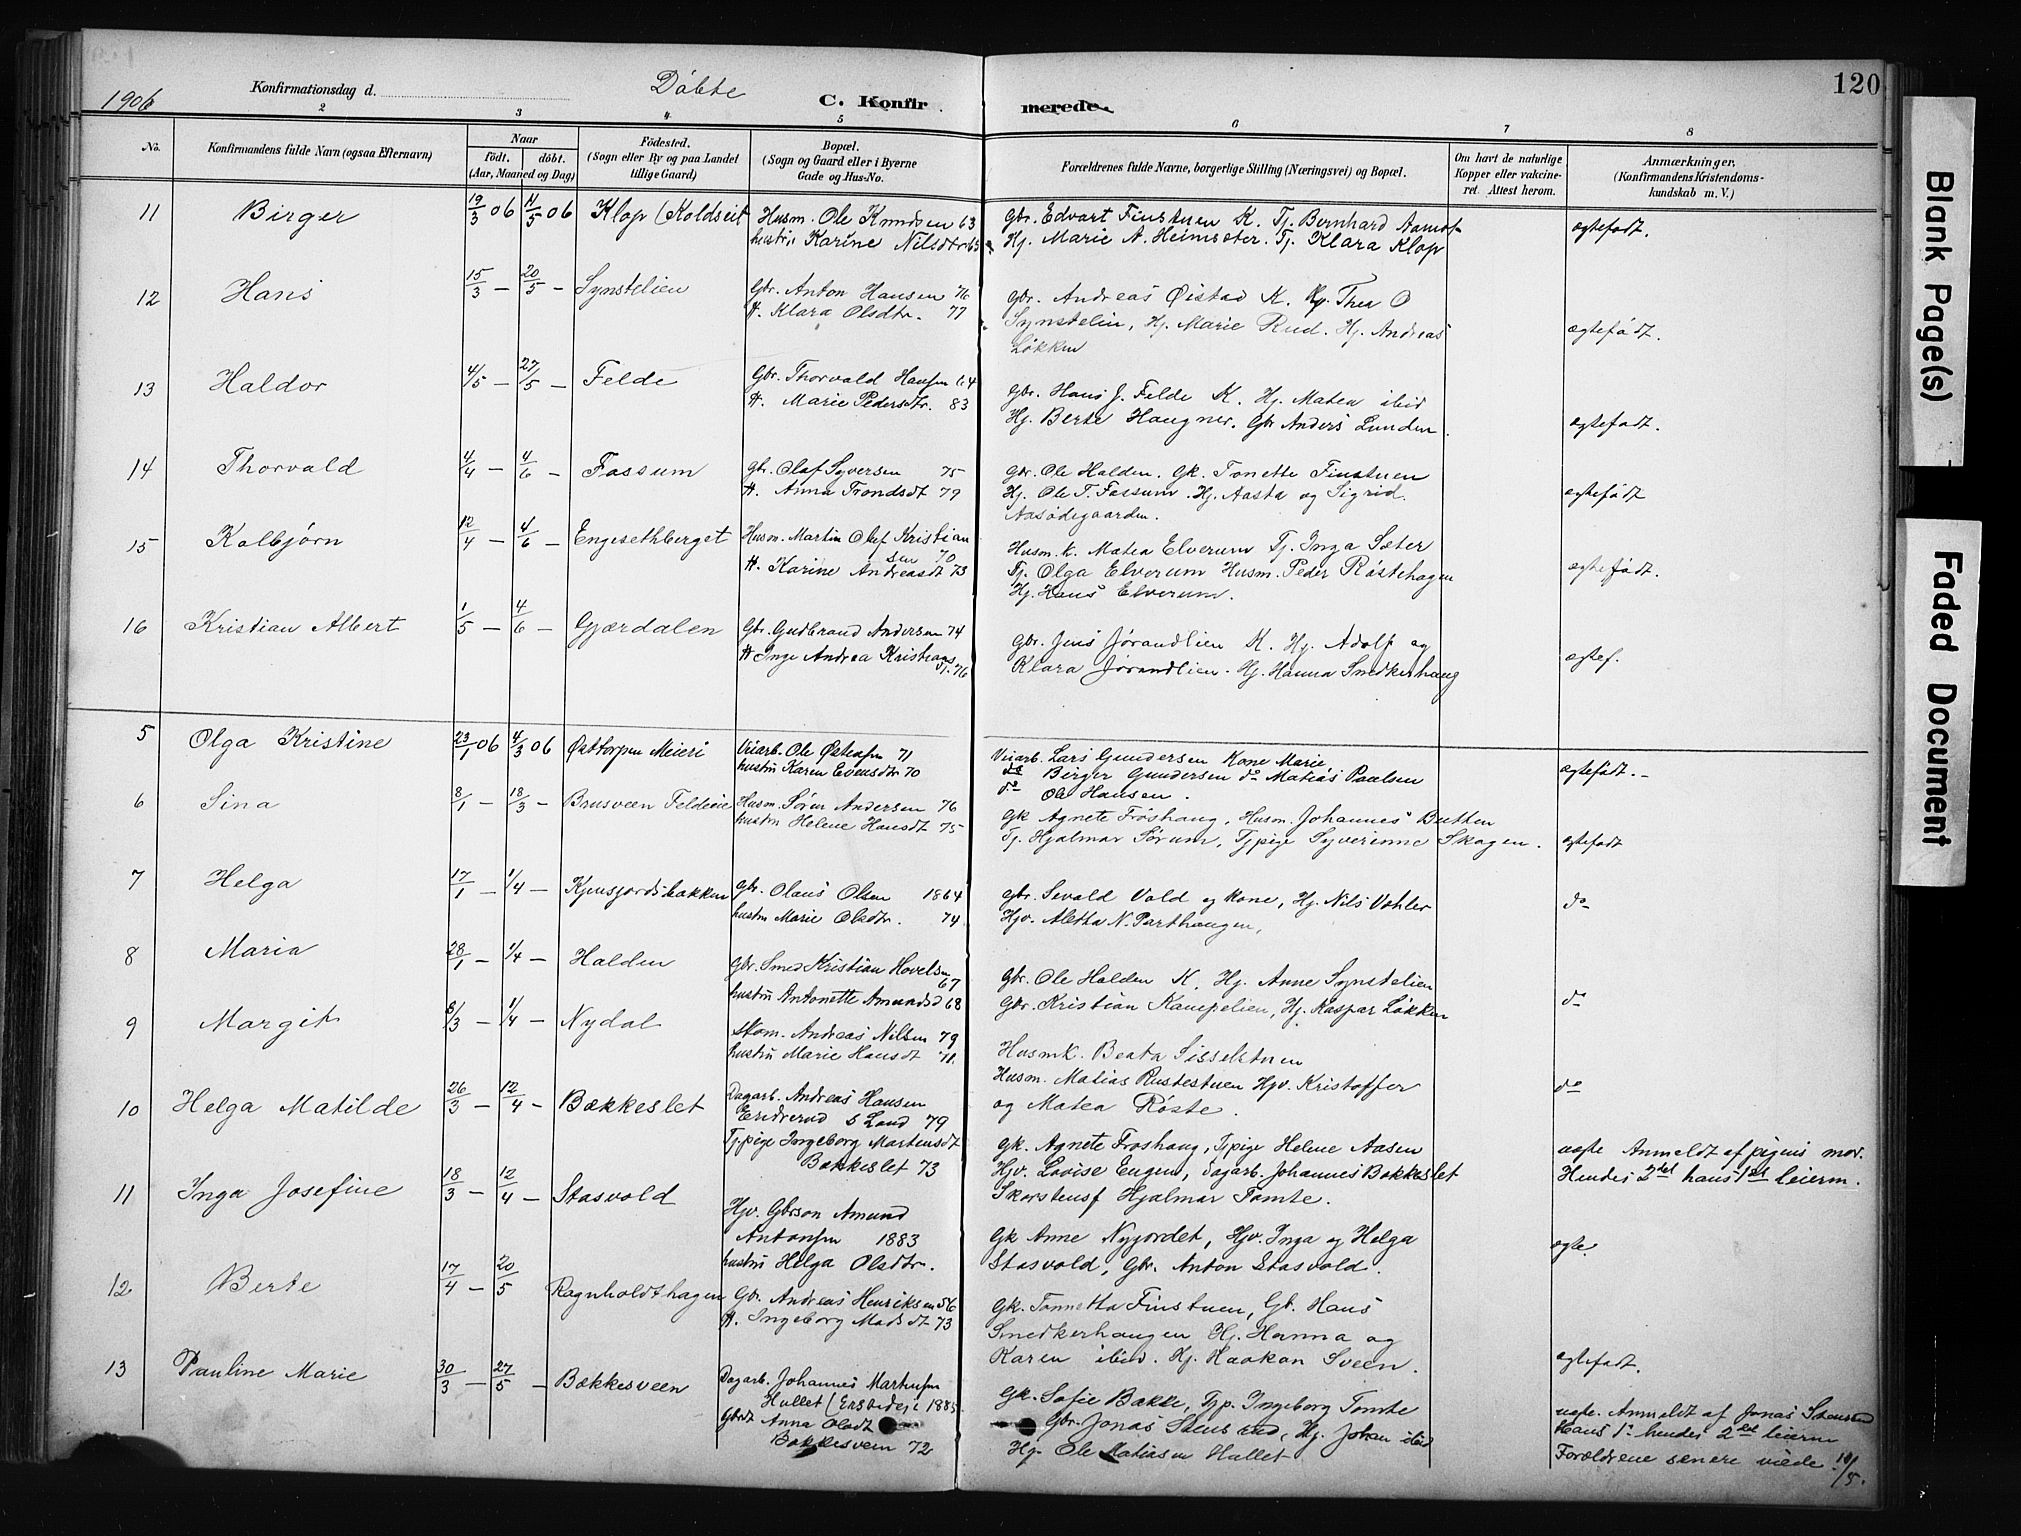 120
1906
Konfirmationsdag d.
Döbte
C. Konfir
merede.
2 3 4 5 6 7 8
No.
Konfirmandens fulde Navn (ogsaa Efternavn)
Naar
födt. döbt.
(Aar, Maaned og Dag)
Födested.
(Sogn eller By og paa Landet
tillige Gaard)
Bopæl.
(Sogn og Gaard eller i Byerne
Gade og Hus-No.
Forældrenes fulde Navne, borgerlige Stilling (Næringsvei) og Bopæl.
Om havt de naturlige
Kopper eller vakcine-
ret. Attest herom.
Anmærkninger,
(Konfirmandens Kristendoms-
kundskab m. V.)
11 Birger 19/3 06 11/5 06 Klop (Koldseit Husm. Ole Knudsen 63
hustru Karine Nilsdtr 65
Gbr. Edvart Finstuen K. Tj. Bernhard Aamot
Hj. Marie A. Heimseter. Tj. Klara Klop
ægtefødt.
12 Hans 15/3 — 20/5 — Synstelien Gbr. Anton Hansen 76
H. Klara Olsdtr. 77
Gbr. Andreas Øistad K. Hj. Thea O
Synstelin, Hj. Marie Rud. Hj. Andreas
Løkken
ægtefødt.
13 Haldor 4/5 — 27/5 — Felde Gbr. Thorvald Hansen 64
H. Marie Pedersdtr. 83
Gbr. Hans J. Felde K. Hj. Matea ibid
Hj. Berte Haugner. Gbr Anders Lunden.
ægtefødt.
14 Thorvald 4/4 — 4/6 — Fossum Gbr. Olaf Syversen 75
H. Anna Trondsdt 79
Gbr. Ole Halden. Gk. Tonette Finstuen
Hj. Ole T. Fossum. Hj. Aasta og Sigrid
Aasødegaarden.
ægtefødt
15 Kolbjørn 12/4 — 4/6 — Engesethberget Husm. Martin Olaf Kristian
sen 70
H. Karine Andreasdt 73
Husm. K. Matea Elverum Tj. Inga Sæter
Tj. Olga Elverum Husm. Peder Røstehagen
Hj. Hans Elverum.
ægtefødt.
16 Kristian Albert 1/5 — 4/6 — Gjærdalen Gbr. Gudbrand Andersen 74
H. Inge Andrea Kristians
dt. 76
Gbr. Jens Jørandlien K. Hj. Adolf og
Klara Jørandlien. Hj. Hanna Smedkerhaug
ægtef.
5 Olga Kristine 23/1 06 4/3 06 Østtorpen Meieri Veiarb. Ole Østensen 71
hustru Karen Evensdtr 70
Veiarb. Lars Gundersen Kone Marie
do Birger Gundersen do Matias Paulsen
do Ole Hansen.
ægtefødt. -
6 Sina 8/1 — 18/3 — Brusveen Feldeeie Husm. Søren Andersen 76
hustru Helene Hansdt 75
Gk Agnete Frøshaug, Husm. Johannes Butten
Tj. Hjalmar Sørum, Tjpige Syverinne Skogen.
ægtefødt
7 Helga 17/1 — 1/4 — Gbr. Olaus Olsen 1864
hustru Marie Olsdtr. 74
Gbr. Sevald Vold og Kone, Hj. Nils Vøhler
Hjv. Aletha N. Parthaugen,
do
8 Maria 28/1 — 1/4 — Halden Gbr. Smed Kristian Hovelsn
67
hustru Antonette Amundsd 68
Gbr. Ole Halden K. Hj. Anne Synstelien
Gbr. Kristian Kampelien, Hj. Kaspar Løkken
do
9 Margit 8/3 — 1/4 — Nydal Skom. Andreas Nilsen 79
hustru Marie Hansdt 71.
Husmk. Beata Sisselstuen
Husm. Matias Rustestuen Hjv. Kristoffer
og Matea Røste.
do
10 Helga Matilde 26/3 — 12/4 — Bækkeslet Dagarb. Andreas Hansen
S Land 79
Tjpige Ingeborg Martinsdt
Bækkeslet 73
Gk. Agnete Frøshaug, Tjpige Helene Aasen
Hjv. Lovise Engen, Dagarb. Johannes Bækkeslet
Skorstensf Hjalmar Tomte.
uægte Anmeldt af pigens mor.
Hendes 2det hans 1ste leierm.
11 Inga Josefine 18/3 — 12/4 — Stasvold Hjv. Gbrson Amund
Antonsen 1883
hustru Helga Olsdtr.
Gk Anne Nyjordet, Hjv. Inga og Helga
Stasvold, Gbr. Anton Stasvold.
ægte.
12 Berte 17/4 — 20/5 Ragnholdthagen Gbr. Andreas Henriksen 56
H. Ingeborg Mads dt 73
Gk. Tonnetta Finstuen, Gb. Hans
Smedkerhaugen Hj. Hanna og
Karen ibid. Hj. Haakon Sveen.
ægtefødt.
13 Pauline Marie 30/3 — 27/5 — Bækkesveen Dagarb. Johannes Martinsen
Hullet 1885
Gbrdt Anna Olsdt
Bækkesveen 72
Gk. Sofie Bakke, Tjp. Ingeborg Tomte
Gbr. Jonas, Hj. Johan ibid
Hj. Ole Matiasen Hullet
uægte. Anmeldt af Jonas
Hans 1ste hendes 2det leierm
Forældrene senere viede 10/5.
Blank Page(s)
Faded Document